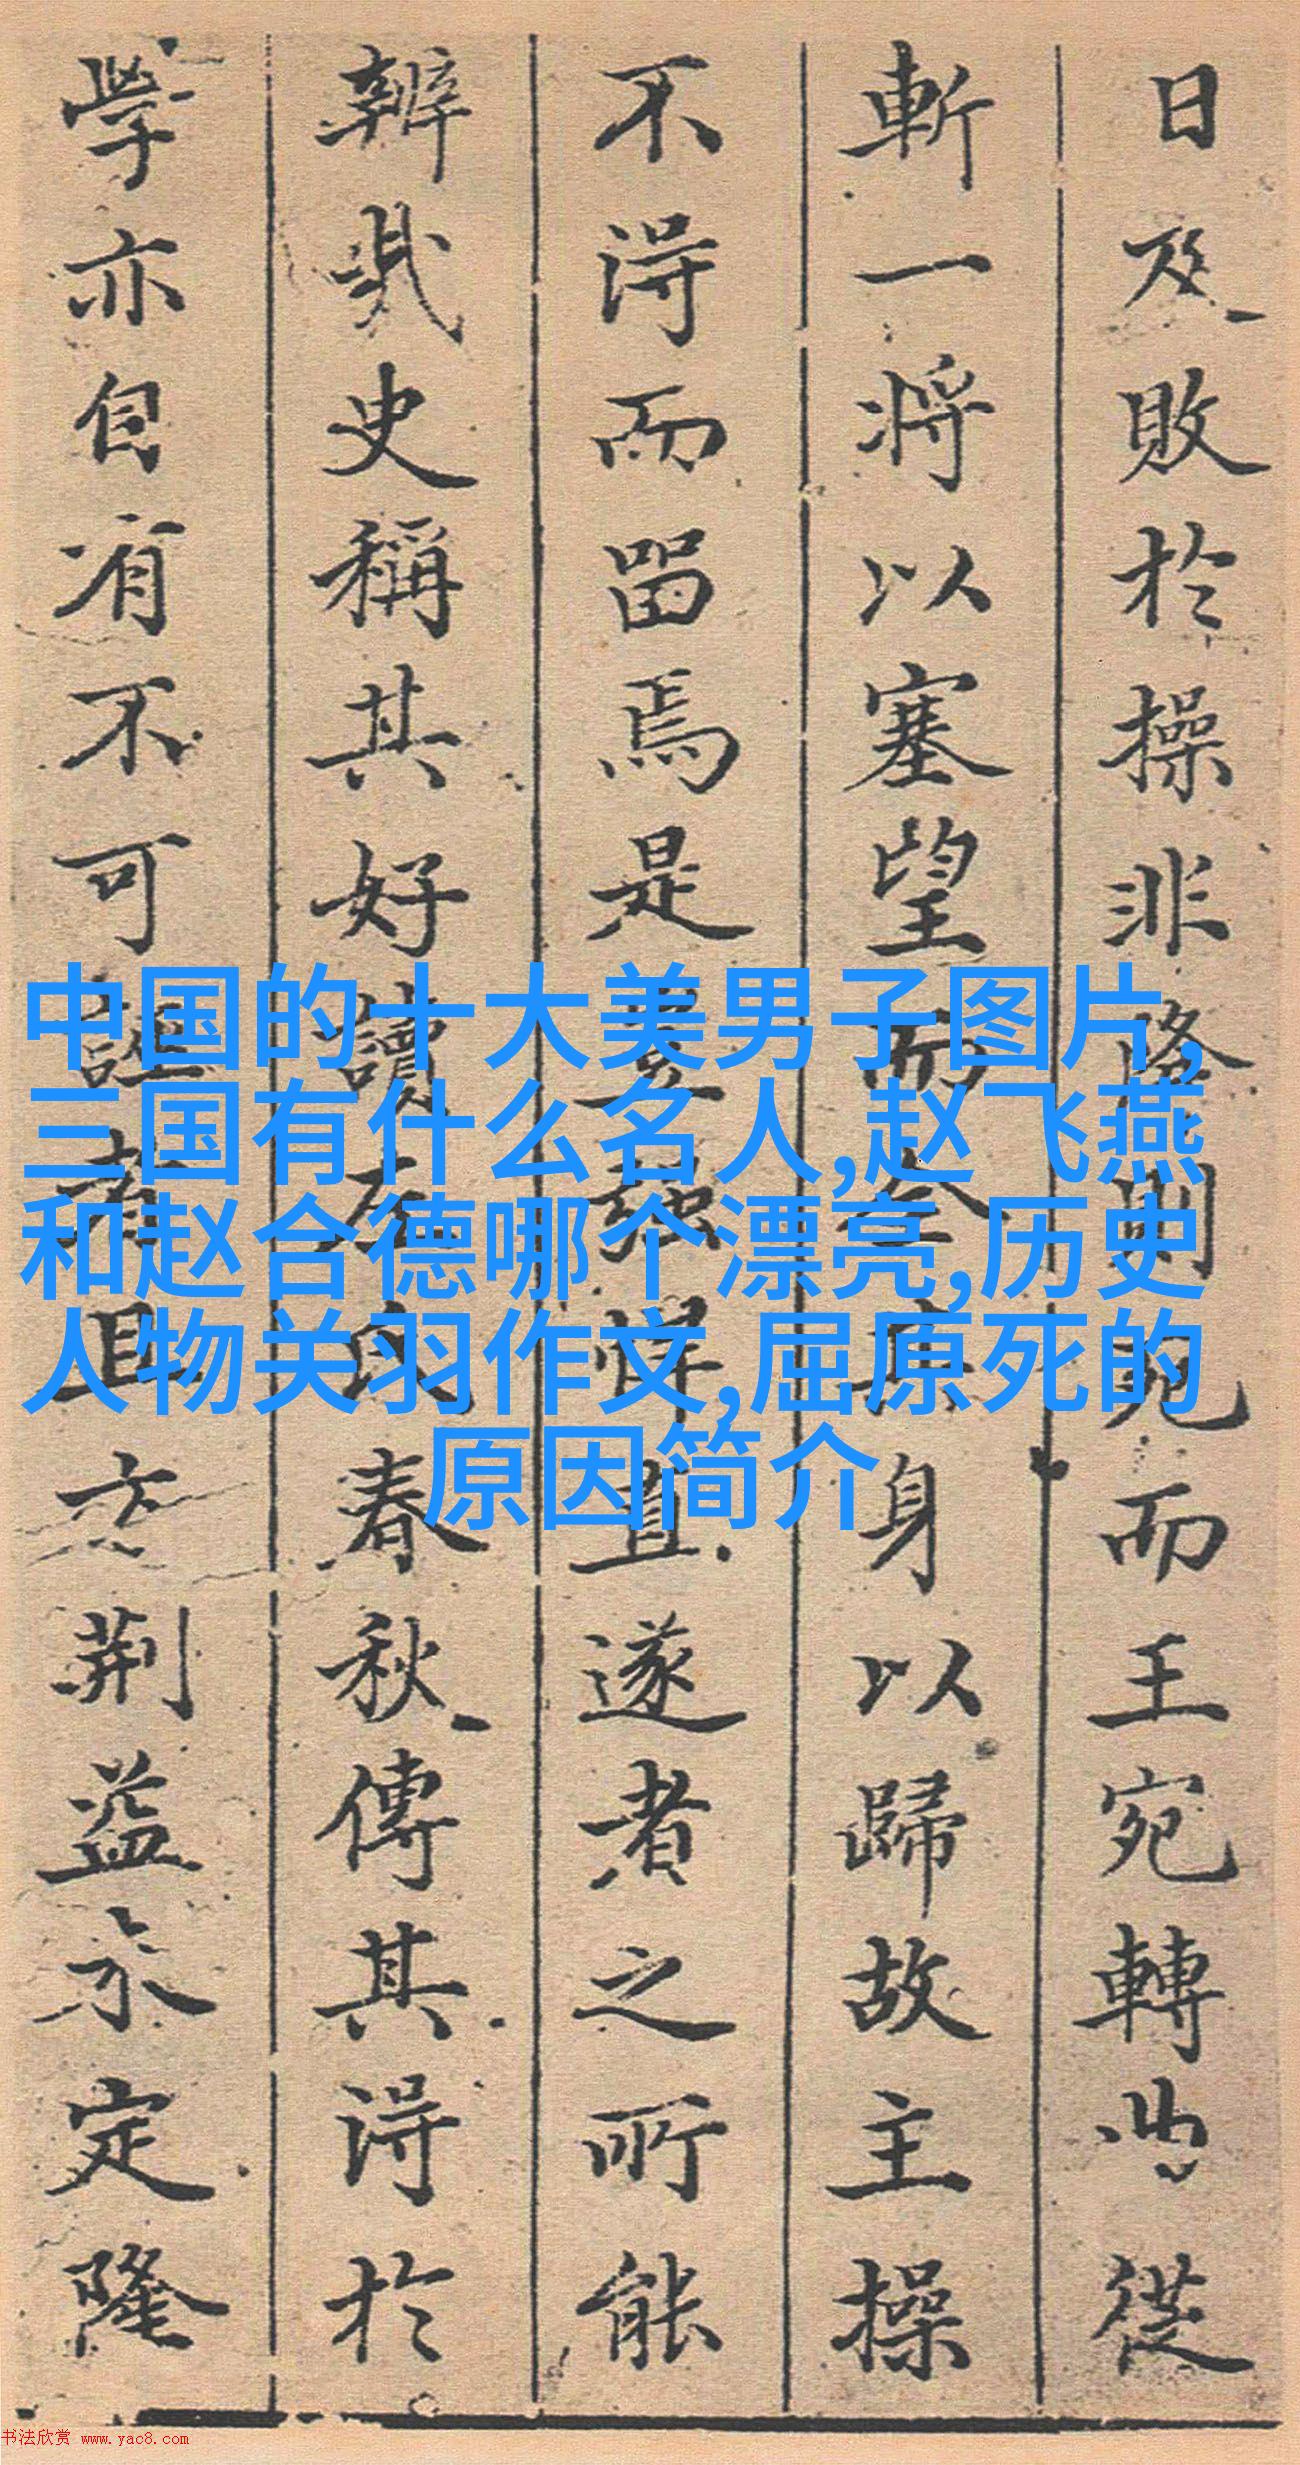 日及敗於操非降則死而王宛轉曲從
斬一將以塞望而全其身以歸故主操
不得而留焉是豈强悍直遂者之所能
辨哉史稱其好讀左氏春秋傳其得於
學亦自有不可誣者且方荆益未定隆
中国的十大美男子图片,
三国有什么名人,赵飞燕
和赵合德哪个漂亮,历史
人物关羽作文,屈原死的
原因简介
书法欣赏 www.yac8.com